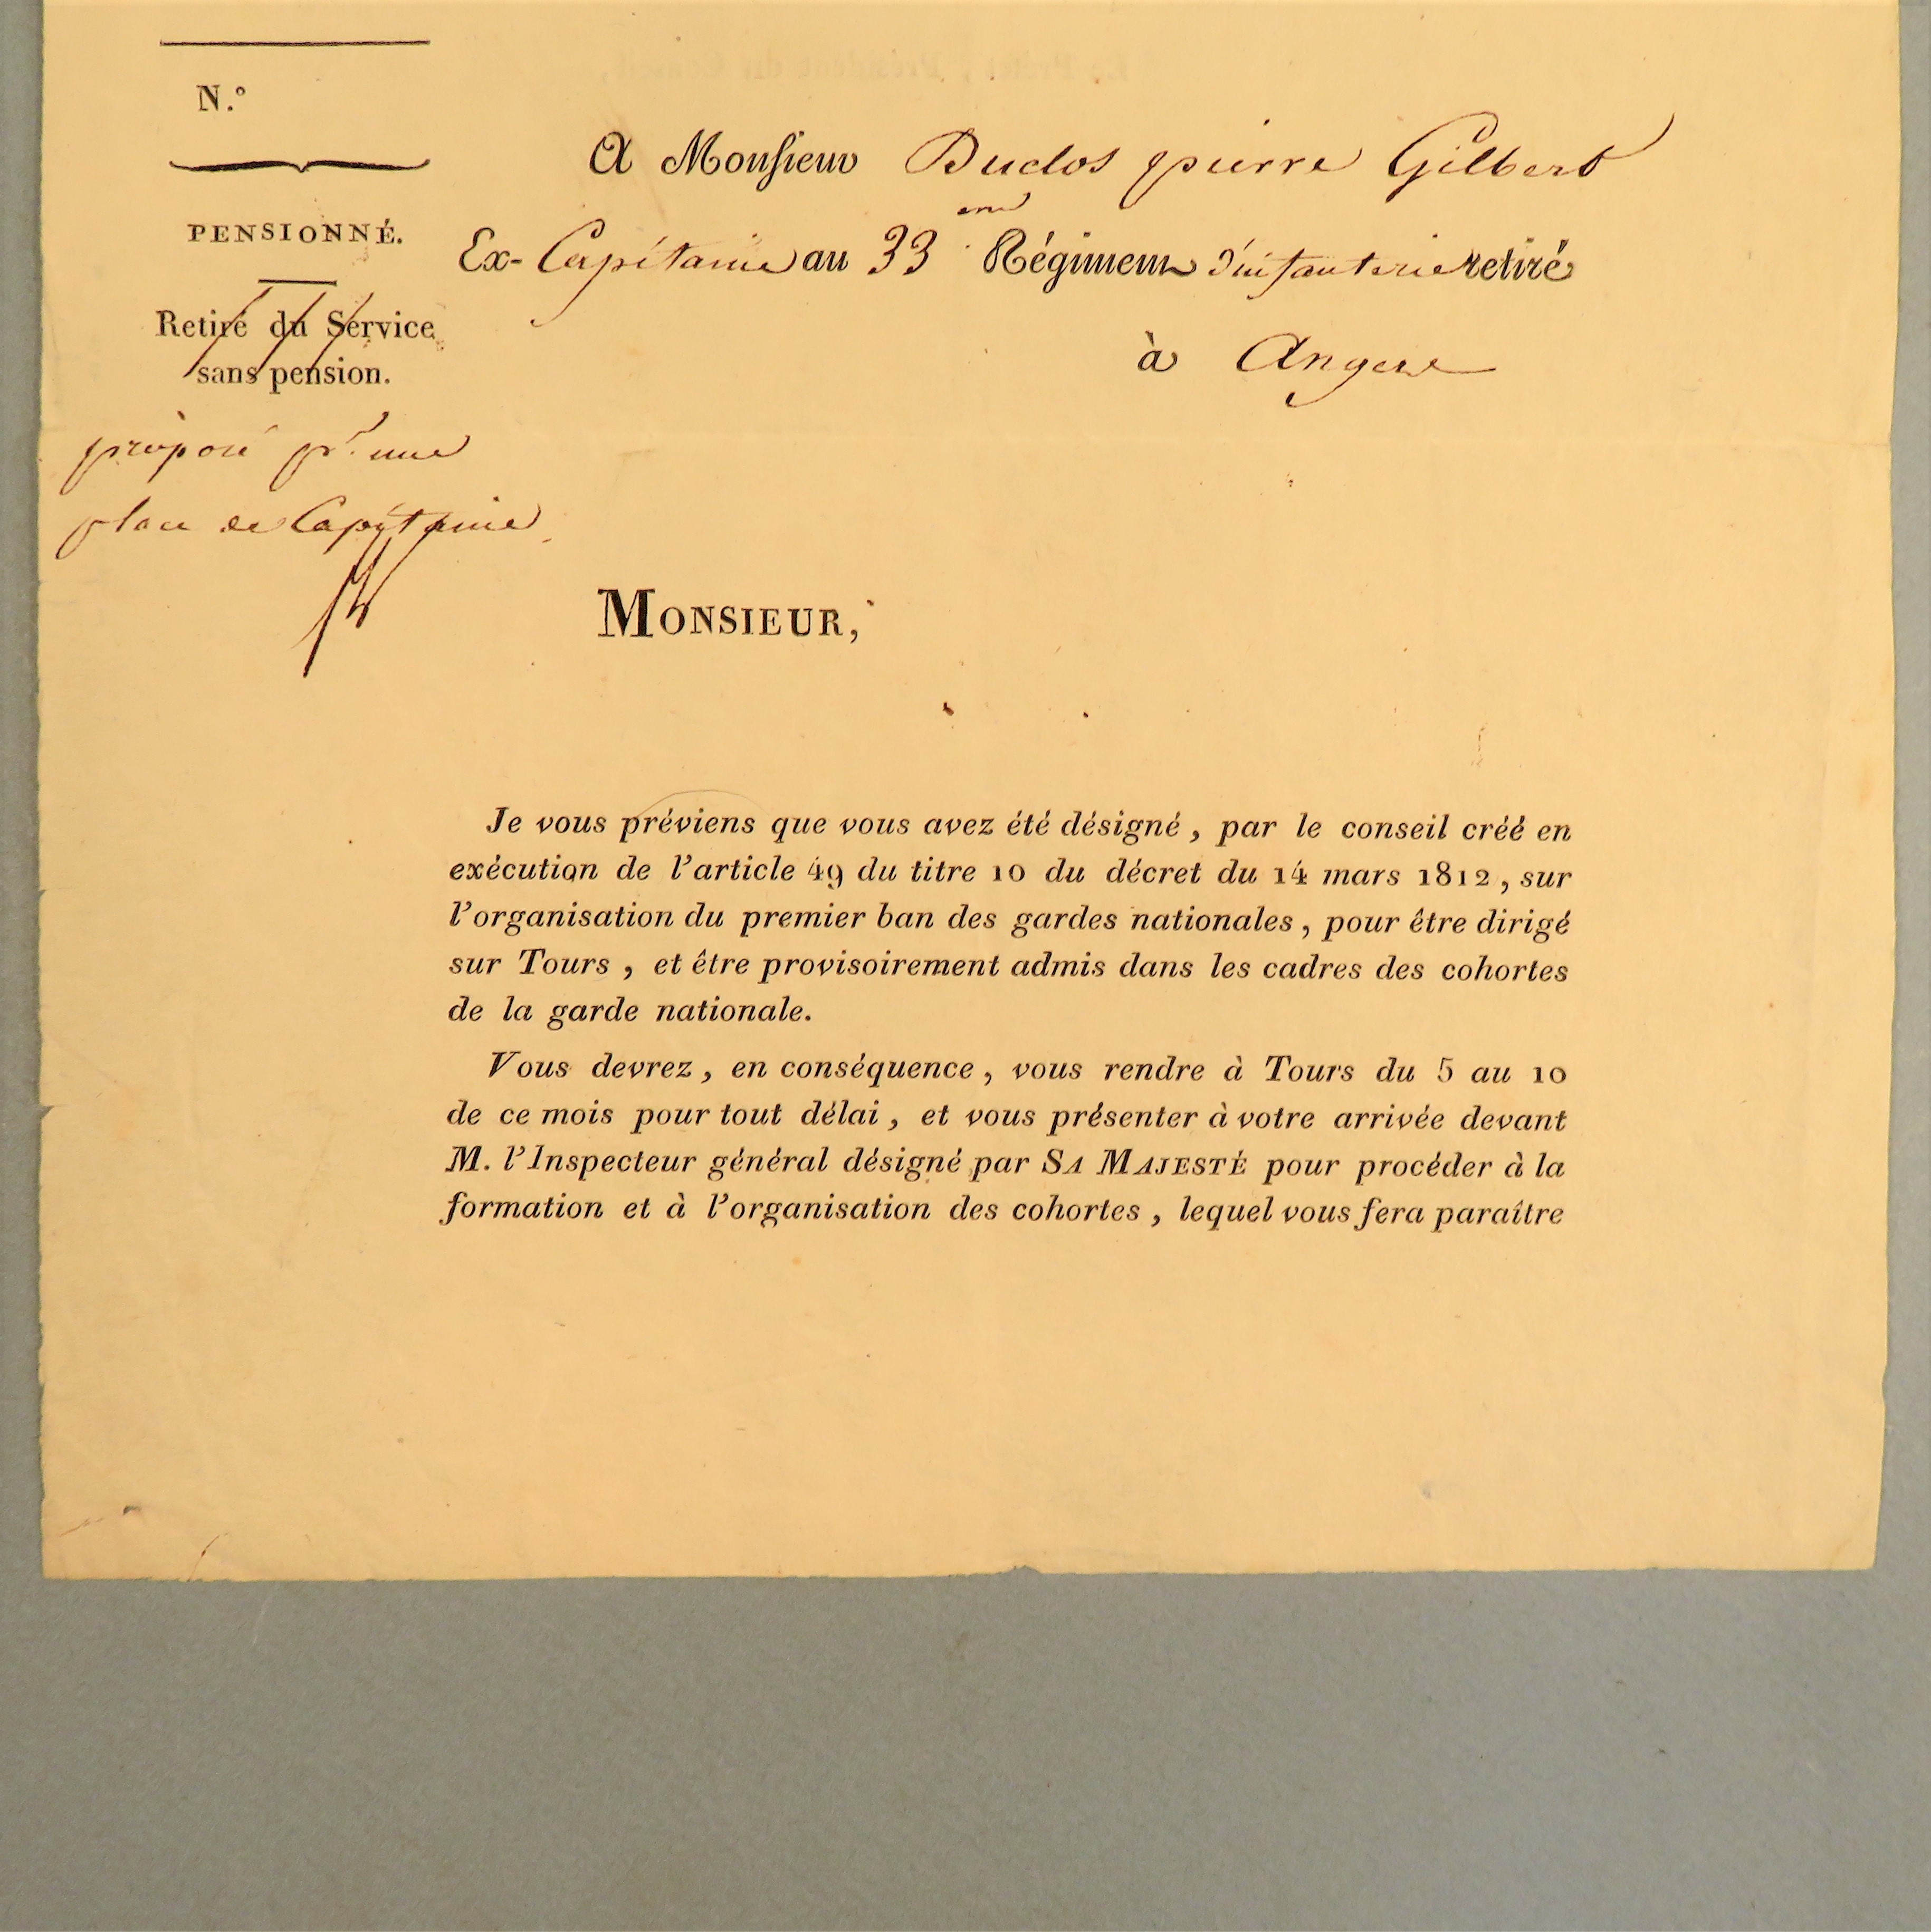 N.°
PENSIONNÉ.
Retiré du Service
sans pension.
proposé pr. une
place de Capitaine
A Monsieur Duclos pierre Gilbert
Ex-Capitaine au 33 eme Régiment d'infanterie retiré
à Angers
MONSIEUR,
Je vous préviens que vous avez été désigné, par le conseil créé en
exécution de l'article 49 du titre 10 du décret du 14 mars 1812, sur
l'organisation du premier ban des gardes nationales, pour être dirigé
sur Tours, et être provisoirement admis dans les cadres des cohortes
de la garde nationale.
Vous devrez, en conséquence, vous rendre à Tours du 5 au 10
de ce mois pour tout délai, et vous présenter à votre arrivée devant
M. l'Inspecteur général désigné par SA MAJESTÉ pour procéder à la
formation et à l'organisation des cohortes, lequel vous fera paraître